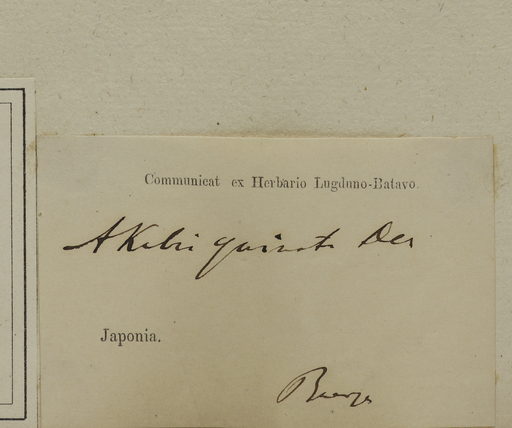 Communicat ex Herbario Lugduno-Batavo.
Akebi quinata Dec
Japonia.
Buerger